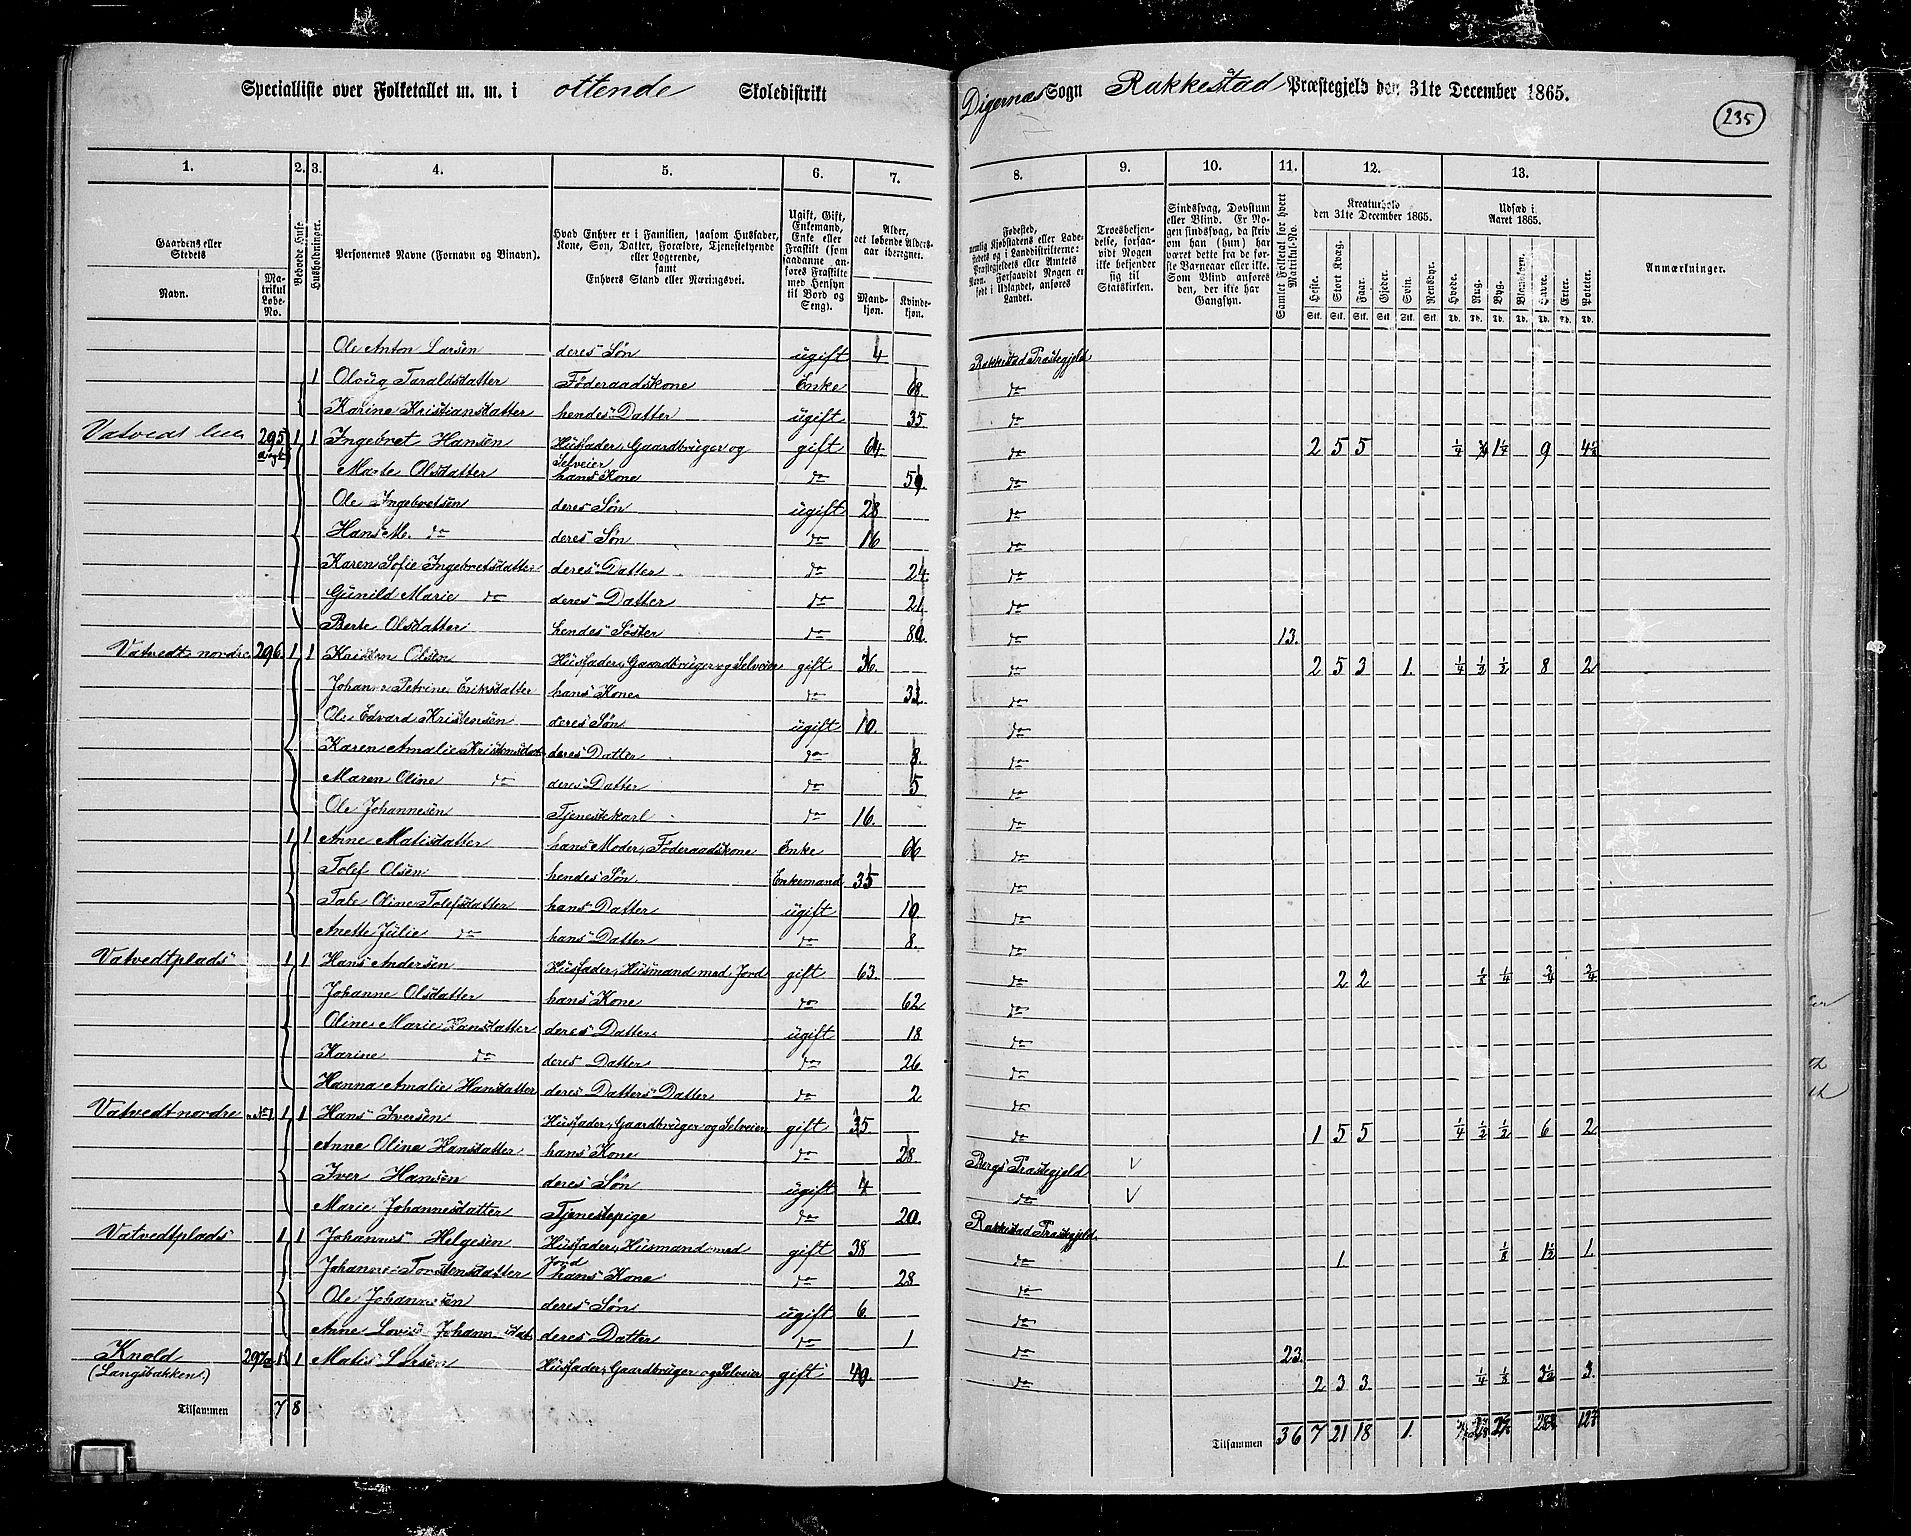 Specialliste over Folketallet m. m. i ottende Skoledistrikt
Digernæs Sogn Rakkestad Præstegjeld den 31te December 1865.
235
1. 2. 3. 4. 5. 6. 7.
8. 9. 10. 11. 12. 13.
Gaardens eller Stedets
Navn. Matrikul Løbe-No.
Beboede Huse.
Husholdninger.
Personernes Navne (Fornavn og Binavn).
Hvad Enhver er i Familien, saasom Husfader, Kone, Søn, Datter, Forældre, Tjenestetyende eller Logerende, samt Enhvers Stand eller Næringsvei.
Ugift, Gift, Enkemand, Enke eller Fraskilt (som saadanne anføres Fraskilte med Hensyn til Bord og Seng).
Alder, det løbende Aldersaar iberegnet.
Mandkjøn. Kvindekjøn.
Fødested, nemlig Kjøbstadens eller Ladestedets og i Landdistrikterne: Præstegjeldets eller Amtets Navn. Forsaavidt Nogen er født i Udlandet, anføres Landet.
Troesbekjendelse, forsaavidt Nogen ikke bekjender sig til Statskirken.
Sindssvag, Døvstum eller Blind. Er Nogen sindssvag, da skriv om han (hun) har været dette fra de første Barneaar eller ikke. Som Blind anføres den, der ikke har Gangsyn.
Samlet Folketal for hvert Matrikul-No.
Kreaturhold den 31te December 1865.
Heste. Stort Kvæg. Faar. Gjeder. Svin. Rensdyr.
Udsæd i Aaret 1865.
Hvede. Rug. Byg. Blandkorn. Havre. Erter. Poteter.
Stk. Stk. Stk. Stk. Stk. Stk. Td. Td. Td. Td. Td. Td. Td.
Anmærkninger.
Ole Anton Larsen deres Søn ugift 4 Rakkestad Præstegjeld
1 Oloug Taraldsdatter Föderaadskone Enke 68. do
Karine Kristiansdatter hendes Datter ugift 35 do
Vatvedt 295 1 1 Ingebret Hansen Husfader, Gaardbruger og Selveier gift 64 do 2 5 5 1/4 1/4 9
Marte Olsdatter hans Kone do do
Ole Ingebretsen deres Søn ugift 28 do
Hans M. do deres Søn do 16 do
Karen Sofie Ingebretsdatter deres Datter do 24 do
Gunild Marie do deres Datter do 21 do
Berte Olsdatter hendes Söster do 80 do 13.
Vatvedt nordre 296 1 1 Kristen Olsen Husfader, Gaardbruger og Selveier gift 36. do 2 5 3 1. 1/4 1/2 1/2 8 2
Johanne Petrine Eriksdatter hans Kone do do
Ole Edvard Kristensen deres Søn ugift 10. do
Karen Amalie Kristensdat deres Datter do 8. do
Maren Oline do deres Datter do 5 do
Ole Johannesen Tjenestekarl do 16. do
1 1 Anne Matisdatter hans Moder, Föderaadskone Enke 66 do
Tolef Olsen hendes Søn Enkemand 35 do
Oline Tolefsdatter hans Datter ugift 10 do
Anette Julie do hans Datter do 8. do
Vatvedtplads 1 1 Hans Andersen Husfader, Husmand med Jord gift 63 do 2 2 1/2 1/4 3/4 3/4
Johanne Olsdatter hans Kone do 62 do
Oline Marie Hansdatter deres Datter ugift 18 do
Karine do deres Datter do 26 do
Hanna Amalie Hansdatter deres Datters Datter do 2 do
Vatvedt nordre 1 1 Hans Iversen Husfader, Gaardbruger og Selveier gift 35 do 1 5 5 1/4 1/2 1/2 6 2
Anne Oline Hansdatter hans Kone do 28. Bergs Præstegjeld V
Iver Hansen deres Søn ugift 4 do V
Marie Johannesdatter Tjenestepige do 20. Rakkestad Præstegjeld
Vatvedtplads 1 1 Johannes Helgesen Husfader, Husmand med Jord gift 38 do 1 1/8 1½ 1.
Johanne Torstensdatter hans Kone do 28 do
Ole Johannesen deres Søn ugift 6. do
Anne Lovise Johannesdat deres Datter do 1 do 23.
Knold (Langsbakken) 297a 1 1 Matis Larsen Husfader, Gaardbruger og Selveier gift 40 do 2 3 3 1/4 1/8 3½ 3.
Tilsammen 7 8
Tilsammen 36 7 21 18 1.